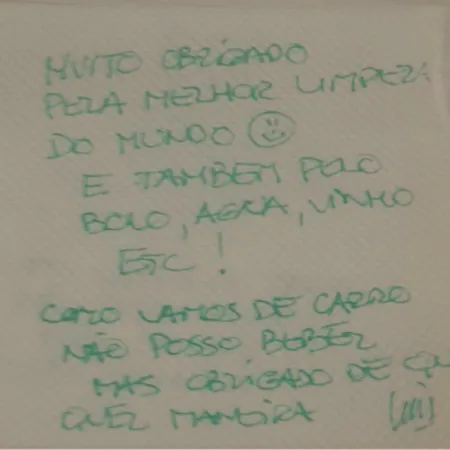 MUITO OBRIGADO
PELA MELHOR LIMPEZA
DO MUNDO
E TAMBEM PELO
BOLO, AGUA, VINHO
ETC!
COMO VAMOS DE CARRO
NÃO POSSO BEBER
MAS OBRIGADO DE QU
QUEL MANEIRA